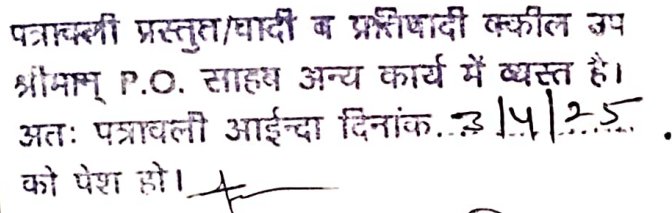 पत्रावली प्रस्तुत/वादी व प्रतिवादी वकील उप
श्रीमान् P.O. साहब अन्य कार्य में व्यस्त है।
अतः पत्रावली आईन्दा दिनांक..3/4/25.......
को पेश हो।